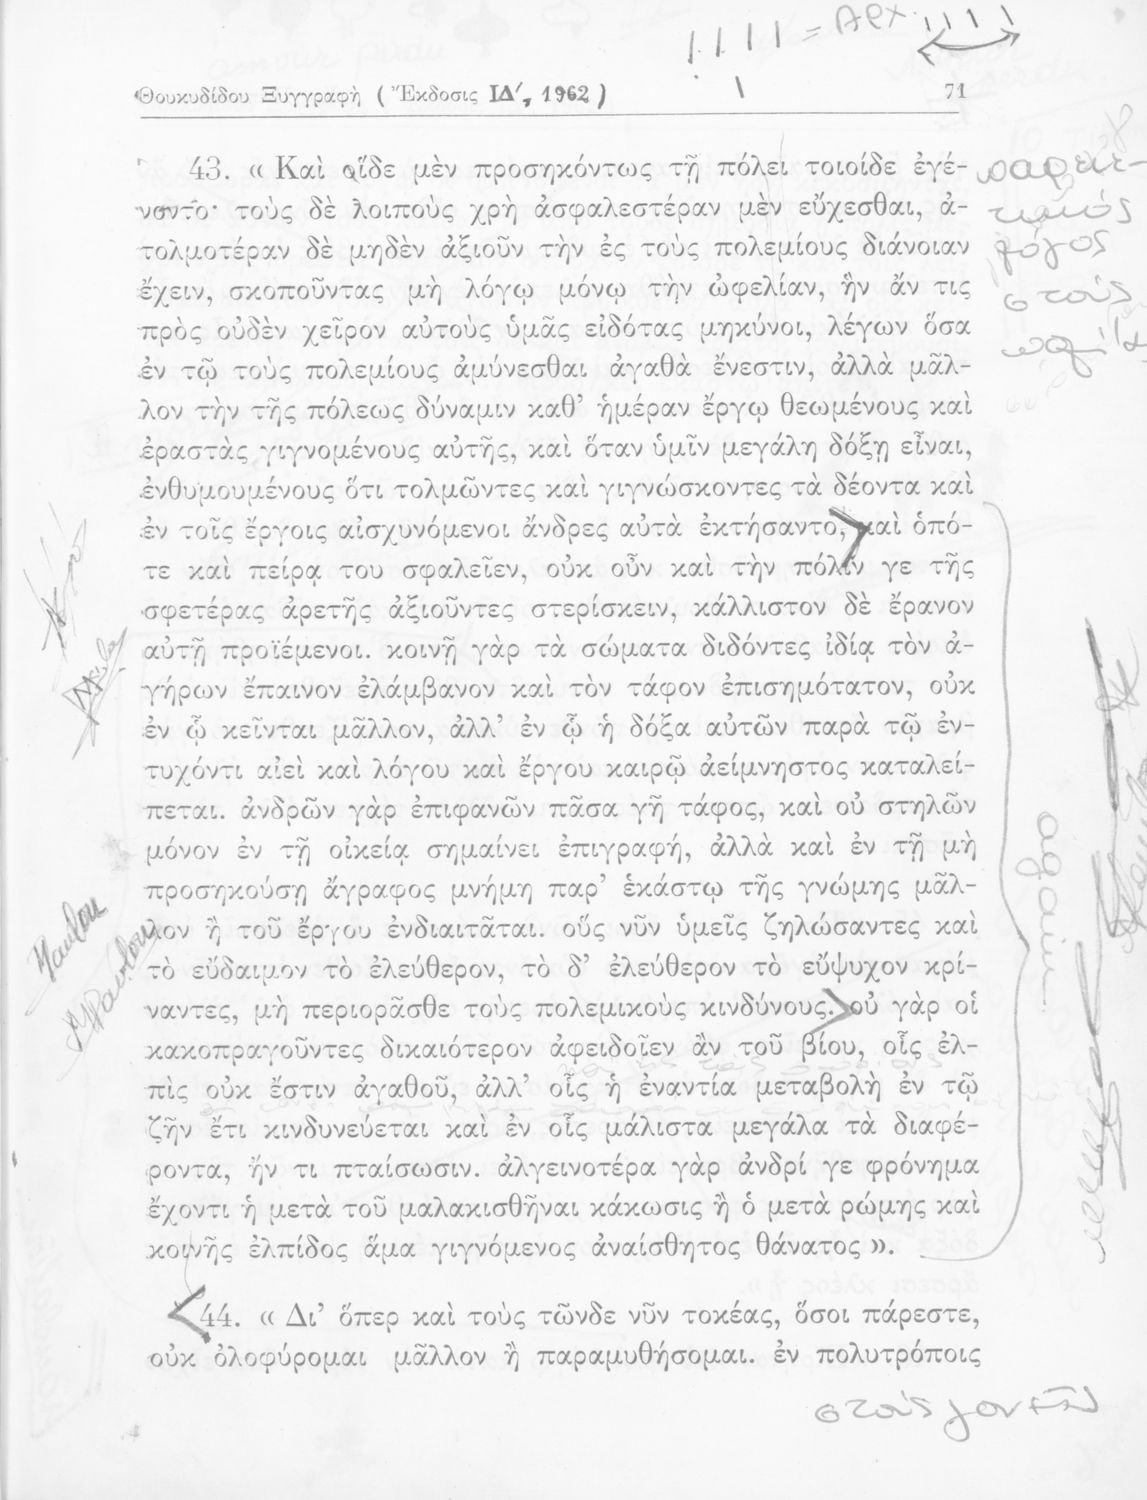 = Αρχ.
Θουκυδίδου Ξυγγραφὴ ( Ἔκδοσις ΙΔ′, 1962 ) 71
43. « Καὶ οἵδε μὲν προσηκόντως τῇ πόλει τοιοίδε ἐγέ-
νοντο· τοὺς δὲ λοιποὺς χρὴ ἀσφαλεστέραν μὲν εὔχεσθαι, ἀ-
τολμοτέραν δὲ μηδὲν ἀξιοῦν τὴν ἐς τοὺς πολεμίους διάνοιαν
ἔχειν, σκοποῦντας μὴ λόγῳ μόνῳ τὴν ὠφελίαν, ἣν ἄν τις
πρὸς οὐδὲν χεῖρον αὐτοὺς ὑμᾶς εἰδότας μηκύνοι, λέγων ὅσα
ἐν τῷ τοὺς πολεμίους ἀμύνεσθαι ἀγαθὰ ἔνεστιν, ἀλλὰ μᾶλ-
λον τὴν τῆς πόλεως δύναμιν καθ’ ἡμέραν ἔργῳ θεωμένους καὶ
ἐραστὰς γιγνομένους αὐτῆς, καὶ ὅταν ὑμῖν μεγάλη δόξῃ εἶναι,
ἐνθυμουμένους ὅτι τολμῶντες καὶ γιγνώσκοντες τὰ δέοντα καὶ
ἐν τοῖς ἔργοις αἰσχυνόμενοι ἄνδρες αὐτὰ ἐκτήσαντο, καὶ ὁπό-
τε καὶ πείρᾳ του σφαλεῖεν, οὐκ οὖν καὶ τὴν πόλιν γε τῆς
σφετέρας ἀρετῆς ἀξιοῦντες στερίσκειν, κάλλιστον δὲ ἔρανον
αὐτῇ προϊέμενοι. κοινῇ γὰρ τὰ σώματα διδόντες ἰδίᾳ τὸν ἀ-
γήρων ἔπαινον ἐλάμβανον καὶ τὸν τάφον ἐπισημότατον, οὐκ
ἐν ᾧ κεῖνται μᾶλλον, ἀλλ’ ἐν ᾧ ἡ δόξα αὐτῶν παρὰ τῷ ἐν-
τυχόντι αἰεὶ καὶ λόγου καὶ ἔργου καιρῷ ἀείμνηστος καταλεί-
πεται. ἀνδρῶν γὰρ ἐπιφανῶν πᾶσα γῆ τάφος, καὶ οὐ στηλῶν
μόνον ἐν τῇ οἰκείᾳ σημαίνει ἐπιγραφή, ἀλλὰ καὶ ἐν τῇ μὴ
προσηκούσῃ ἄγραφος μνήμη παρ’ ἑκάστῳ τῆς γνώμης μᾶλ-
λον ἢ τοῦ ἔργου ἐνδιαιτᾶται. οὓς νῦν ὑμεῖς ζηλώσαντες καὶ
τὸ εὔδαιμον τὸ ἐλεύθερον, τὸ δ’ ἐλεύθερον τὸ εὔψυχον κρί-
ναντες, μὴ περιορᾶσθε τοὺς πολεμικοὺς κινδύνους. οὐ γὰρ οἱ
κακοπραγοῦντες δικαιότερον ἀφειδοῖεν ἂν τοῦ βίου, οἷς ἐλ-
πὶς οὐκ ἔστιν ἀγαθοῦ, ἀλλ’ οἷς ἡ ἐναντία μεταβολὴ ἐν τῷ
ζῆν ἔτι κινδυνεύεται καὶ ἐν οἷς μάλιστα μεγάλα τὰ διαφέ-
ροντα, ἤν τι πταίσωσιν. ἀλγεινοτέρα γὰρ ἀνδρί γε φρόνημα
ἔχοντι ἡ μετὰ τοῦ μαλακισθῆναι κάκωσις ἢ ὁ μετὰ ῥώμης καὶ
κοινῆς ἐλπίδος ἅμα γιγνόμενος ἀναίσθητος θάνατος ».
44. « Δι’ ὅπερ καὶ τοὺς τῶνδε νῦν τοκέας, ὅσοι πάρεστε,
οὐκ ὀλοφύρομαι μᾶλλον ἢ παραμυθήσομαι. ἐν πολυτρόποις
στους γονείς